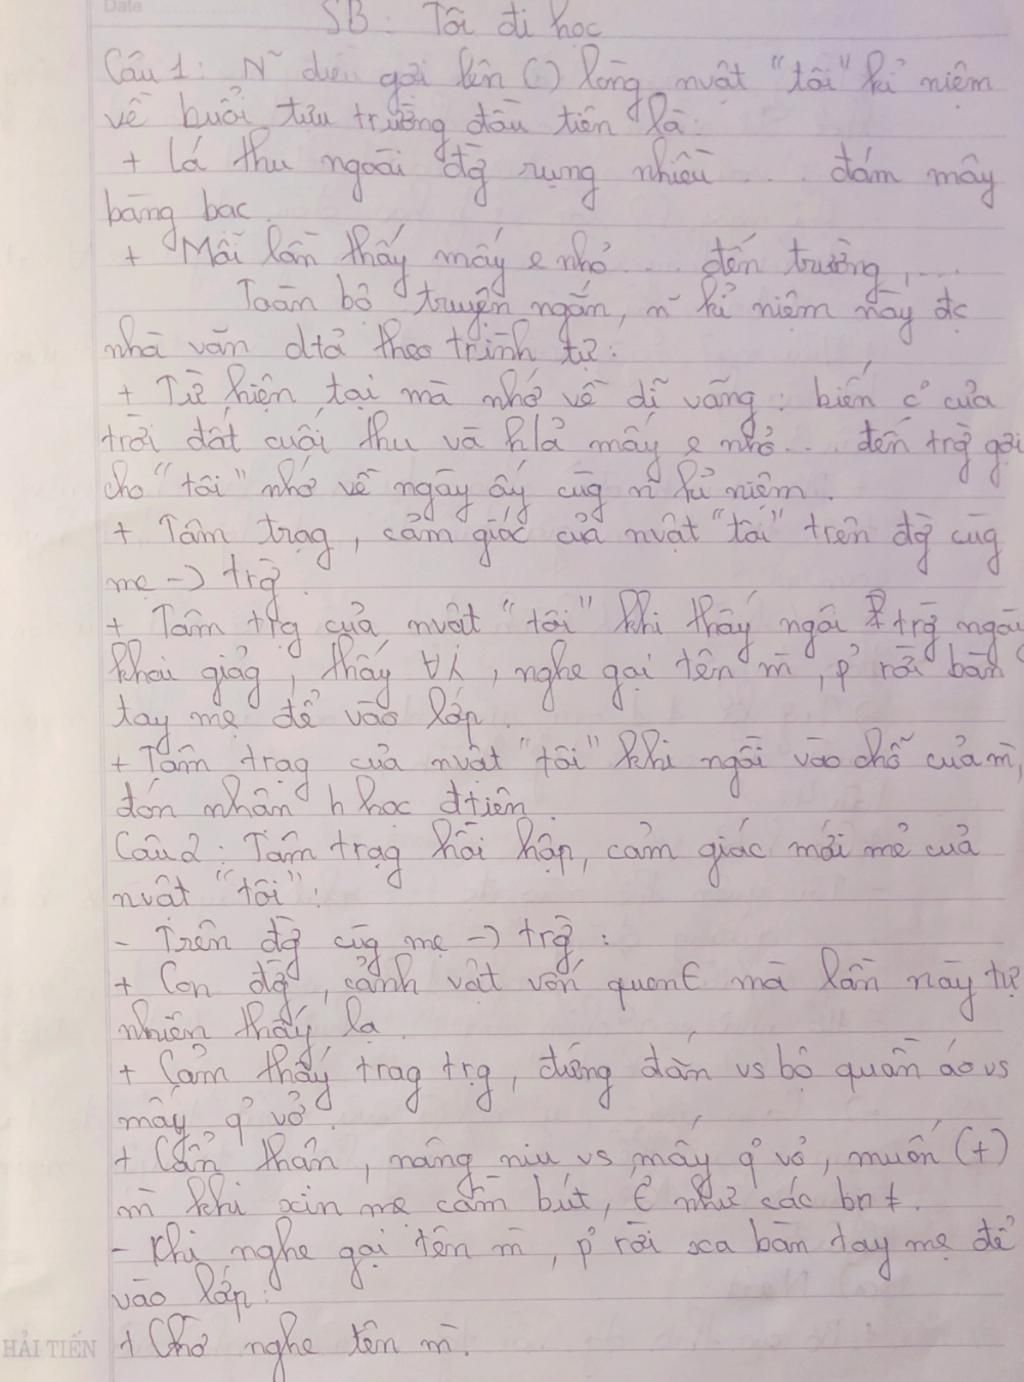 Date
SB: Tôi đi học
Câu 1: N~ điều gợi lên () lòng nvật "tôi" kỉ niệm
về buổi tựu trường đầu tiên là:
+ Lá thu ngoài đg rụng nhiều ... đám mây
bàng bạc.
+ Mỗi lần thấy mấy e nhỏ ... đến trường, ...
Toàn bộ truyện ngắn, n~ kỉ niệm này đc
nhà văn dtả theo trình tự:
+ Từ hiện tại mà nhớ về dĩ vãng: biến c' của
trời đất cuối thu và h/ả mấy e nhỏ ... đến trg gợi
cho "tôi" nhớ về ngày ấy cùg n~ kỉ niệm.
+ Tâm trạg, cảm giác của nvật "tôi" trên đg cùg
mẹ -> trg.
+ Tâm trạg của nvật "tôi" khi thấy ngôi trg ngày
khai giảg, thấy ∀, nghe gọi tên m`, p' rời bàn
tay mẹ để vào lớp.
+ Tâm trạg của nvật "tôi" khi ngồi vào chỗ của m`,
đón nhận h học đtiên.
Câu 2: Tâm trạg hồi hộp, cảm giác mới mẻ của
nvật "tôi":
- Trên đg cùg mẹ -> trg:
+ Con đg, cảnh vật vốn quen€ mà lần này tự
nhiên thấy lạ.
+ Cảm thấy trag trọg, đứng đắn vs bộ quần áo vs
mấy q' vở.
+ Cẩn thận, nâng niu vs mấy q' vở, muốn (+)
m` khi xin mẹ cầm bút, € như các bn ≠.
- Khi nghe gọi tên m`, p' rời xa bàn tay mẹ để
vào lớp:
+ Chờ nghe tên m`.
HẢI TIẾN